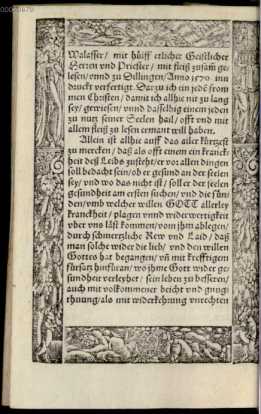 Walasser/ mit hülff etlicher Geistlicher
Herren vnd Priester/ mit fleiß zusam̃ ge-
lesen/vnnd zu Dillingen/Anno 1570 inn
druckt verfertigt. Darzu ich ein jedẽ from
men Christen/ damit ich allhie nit zu lang
sey/ gewiesen/ vnnd dasselbig einem jeden
zu nutz seiner Seelen hail/ offt vnd mit
allem fleiß zu lesen ermant will haben.
Allein ist allhie auff das aller kürtzest
zu mercken/ daß als offt einem ein kranck
heit deß Leibs zusteht/er vor allen dingen
soll bedacht sein/ob er gesund an der seelen
sey/ vnd wo das nicht ist/ soll er der seelen
gesundheit am ersten süchen/ vnd die sün-
den/vmb welcher willen GOTT allerley
kranckheit/ plagen vnnd widerwertigkeit
vber vns läst kommen/vom jhm ablegen/
durch schmertzliche Rew vnd Laid/ daß
man solche wider die lieb/ vnd den willen
Gottes hat begangen/ vñ mit krefftigem
fürsatz hinfüran/ wo jhme Gott wider ge-
sundheit verleyhet/ sein leben zu besseren/
auch mit volkommener beicht vnd gnüg-
thüung/als mit widerkehrung vnrechten